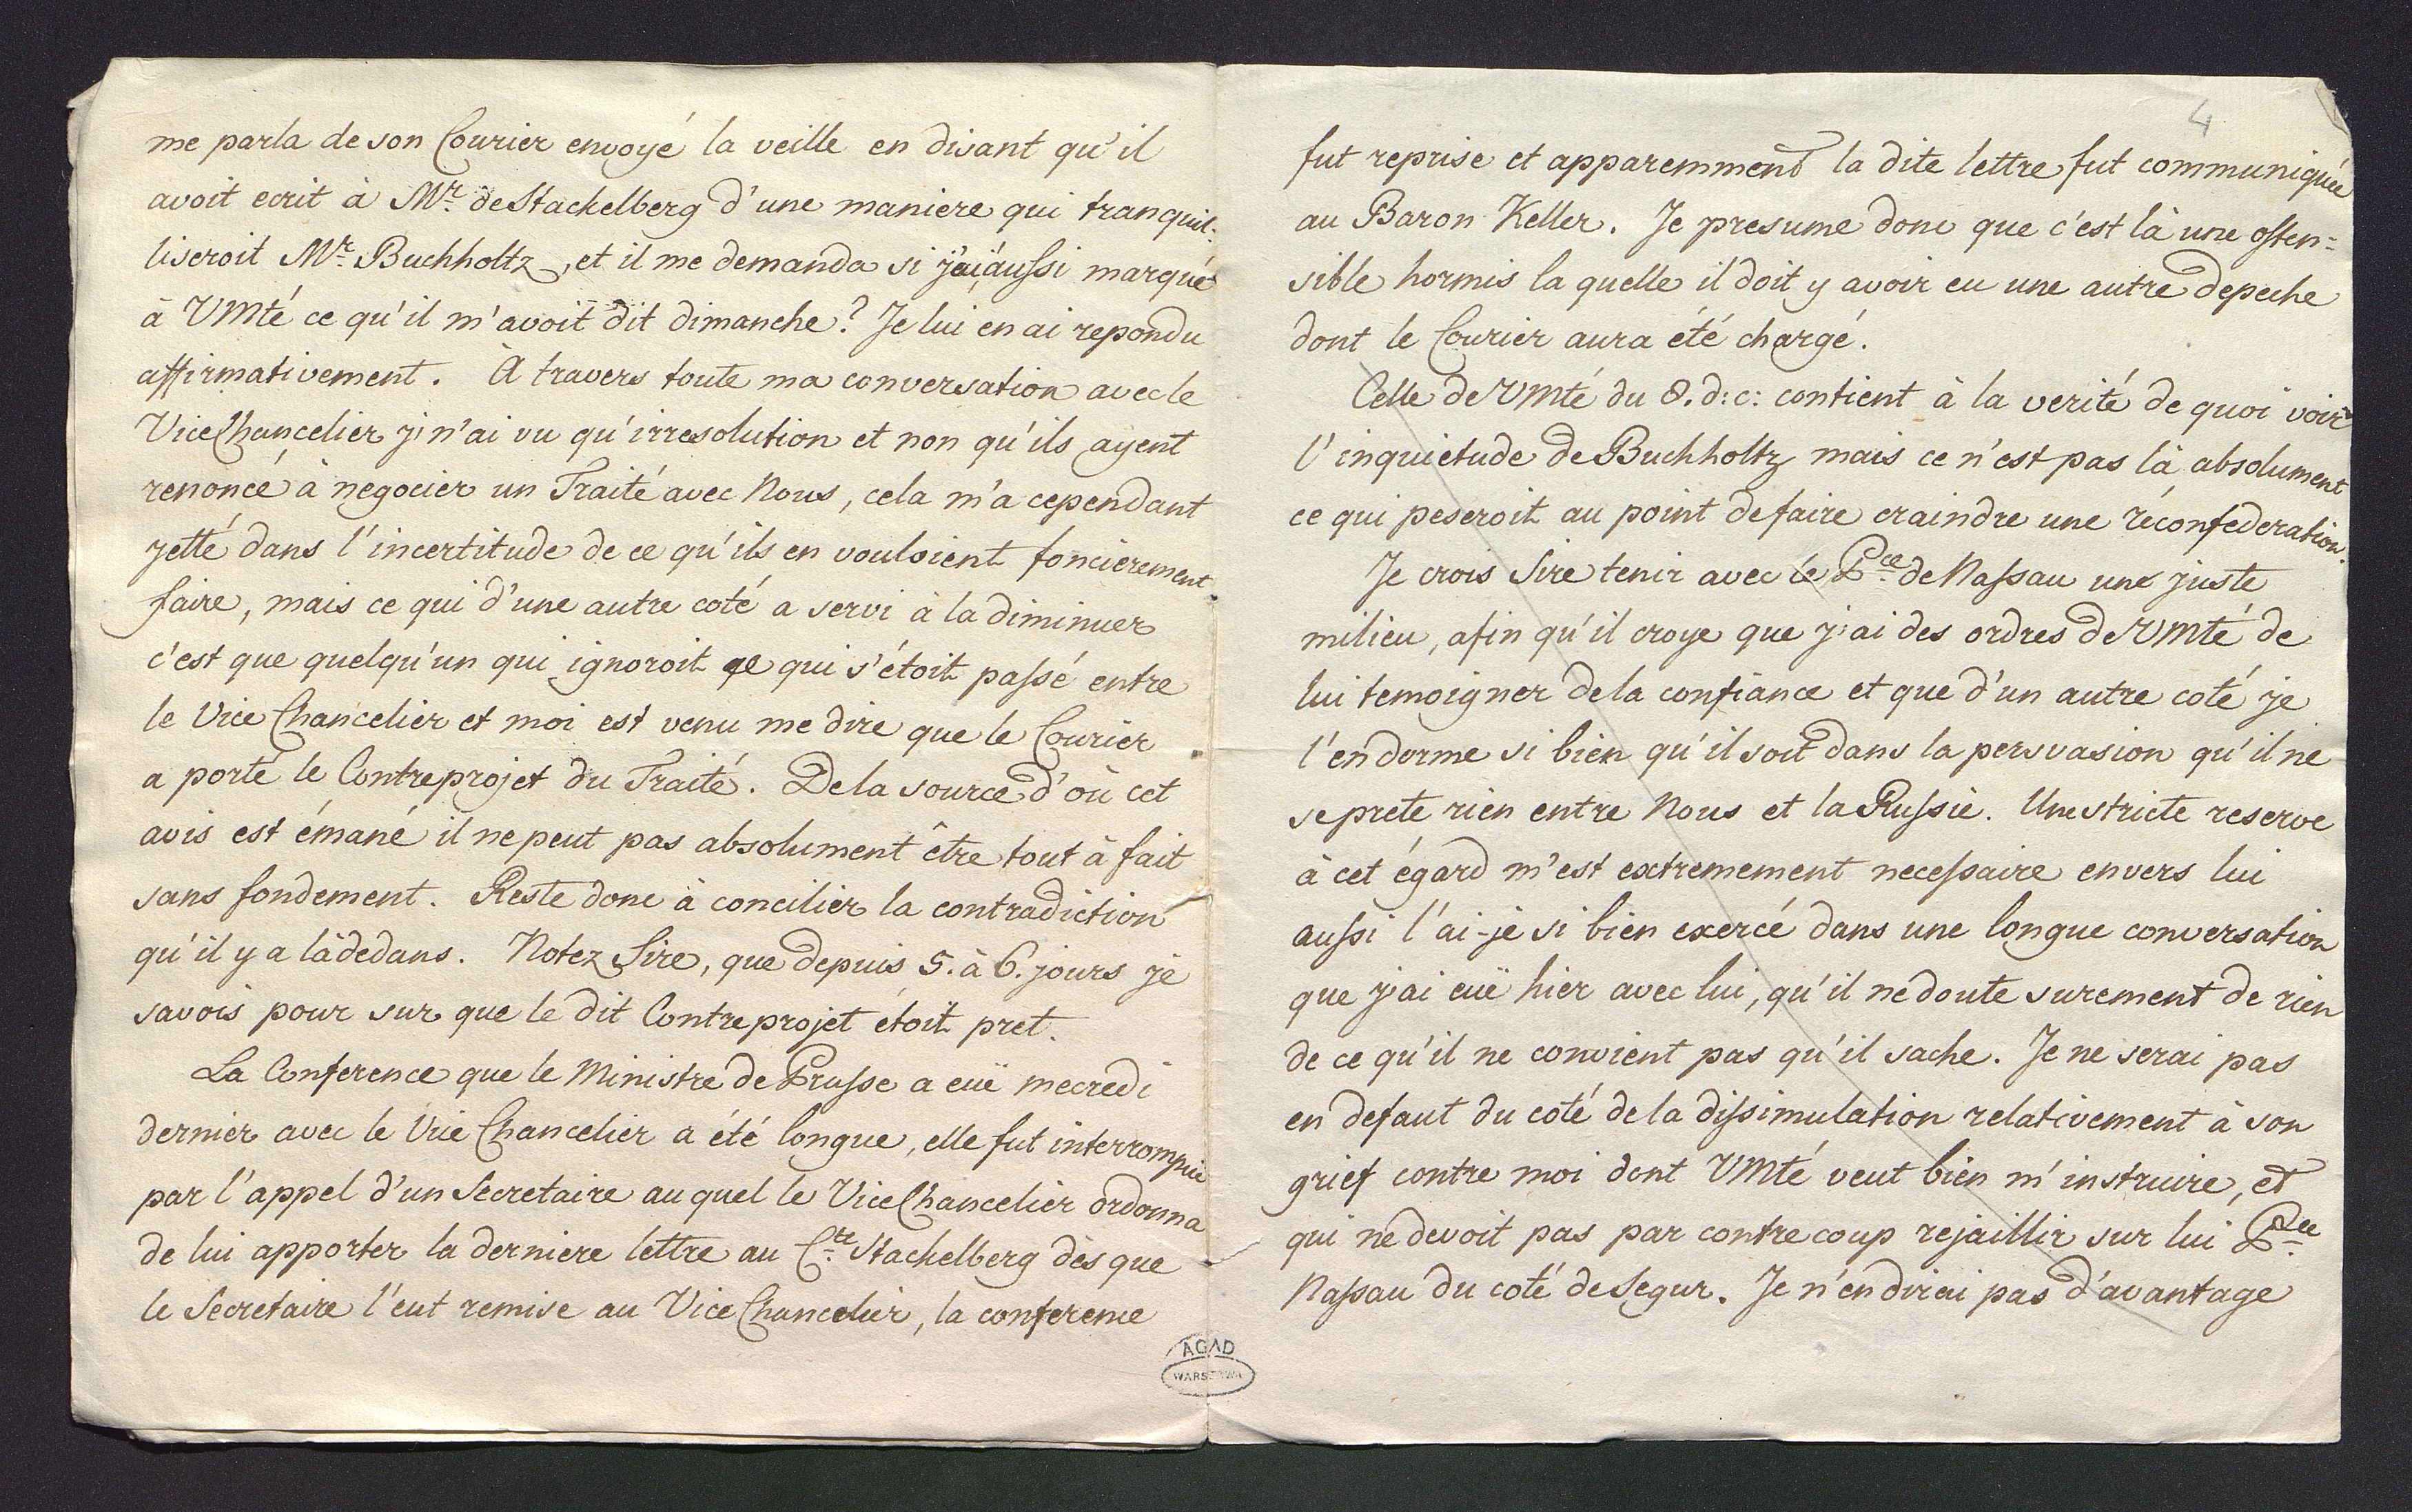 me parla de son Courier envoyé la veille en disant qu'il
avoit ecrit à Mr. de Stackelberg d'une maniere qui tranquil-
liseroit Mr. Buchholtz, et il me demanda si j'ai aussi marqué
à VMté ce qu'il m'avoit dit dimanche? Je lui en ai repondu
affirmativement. À travers toute ma conversation avec le
Vice Chancelier j'n'ai vu qu'irresolution et non qu'ils ayent
renoncé à negocier un Traité avec Nous, cela m'a cependant
jetté dans l'incertitude de ce qu'ils en vouloient foncièrement
faire, mais ce qui d'une autre coté a servi à la diminuer
c'est que quelqu'un qui ignoroit ce qui s'étoit passé entre
le Vice Chancelier et moi est venu me dire que le Courier
a porté le Contreprojet du Traité. De la source d'où cet
avis est émané il ne peut pas absolument être tout à fait
sans fondement. Reste donc à concilier la contradiction
qu'il y a làdedans. Notez Sire, que depuis 5. à 6. jours je
savois pour sur que le dit Contreprojet étoit pret.
La Conference que le Ministre de Prusse a euë mecredi
dernier avec le Vice Chancelier a été longue, elle fut interrompuë
par l'appel d'un Secretaire au quel le Vice Chancelier ordonna
de lui apporter la derniere lettre au Cte. Stackelberg dès que
le Secretaire l'eut remise au Vice Chancelier, la conference
4
fut reprise et apparemment la dite lettre fut communiquée
au Baron Keller. Je presume donc que c'est là une osten=
sible hormis la quelle il doit y avoir eu une autre depeche
dont le Courier aura été chargé.
Celle de VMté du 8. d: c: contient à la verité de quoi voir
l'inquietude de Buchholtz mais ce n'est pas là absolument
ce qui peseroit au point de faire craindre une réconfederation.
Je crois Sire tenir avec le Pce. de Nassau une juste
milieu, afin qu'il croye que j'ai des ordres de VMté de
lui temoigner de la confiance et que d'un autre coté je
l'endorme si bien qu'il soit dans la persvasion qu'il ne
se prete rien entre Nous et la Russie. Une stricte reserve
à cet égard m'est extremement necessaire envers lui
aussi l'ai-je si bien exercé dans une longue conversation
que j'ai euë hier avec lui, qu'il ne doute surement de rien
de ce qu'il ne convient pas qu'il sache. Je ne serai pas
en defaut du coté de la dissimulation relativement à son
grief contre moi dont VMté veut bien m'instruire, et
qui ne devoit pas par contre coup rejaillir sur lui Pce.
Nassau du coté de Segur. Je n'en dirai pas d'avantage
AGAD
WARSZAWA